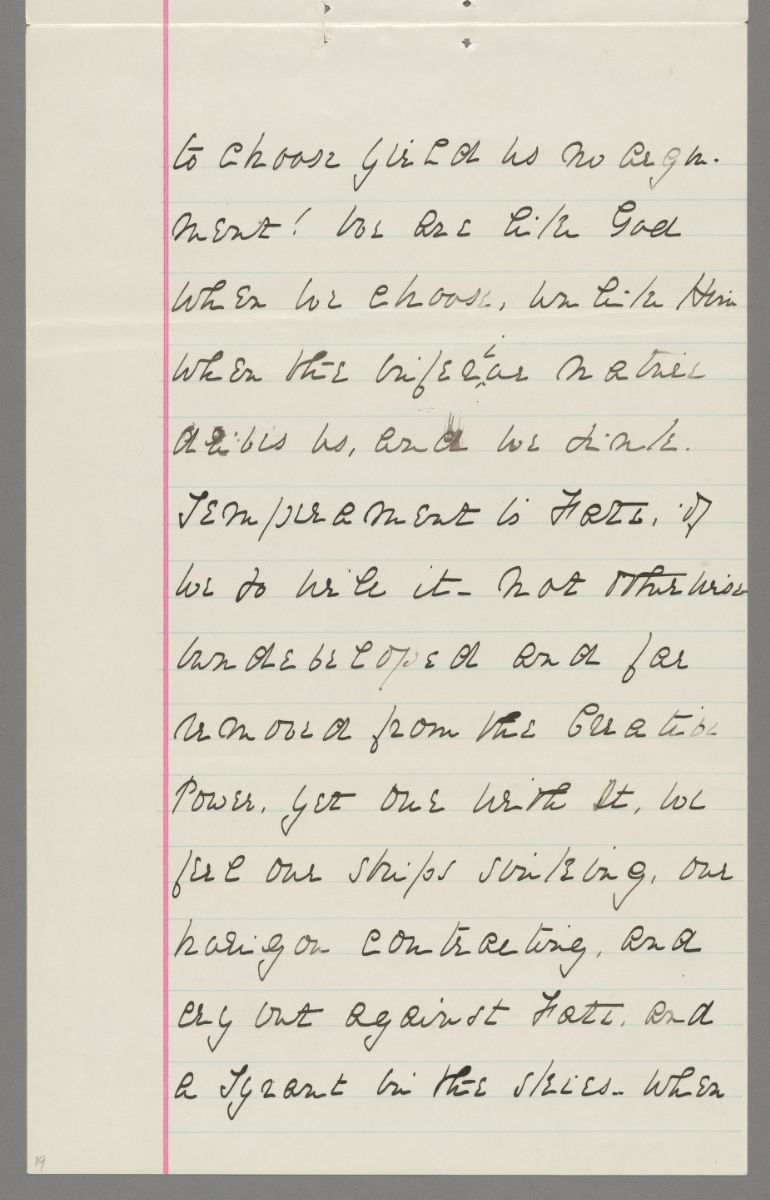 to choose yield us no argu-
ment! We are like God
when we choose, un like Him
when the inferior nature
drives us, and we sink.
Temperament is Fate, if
we so will it - not otherwise
Undeveloped and far
removed from the Creative
Power, yet one with It, we
feel our ships sinking, our
horizon contracting, and
cry out against Fate, and
a Tyrant in the skies - When
19